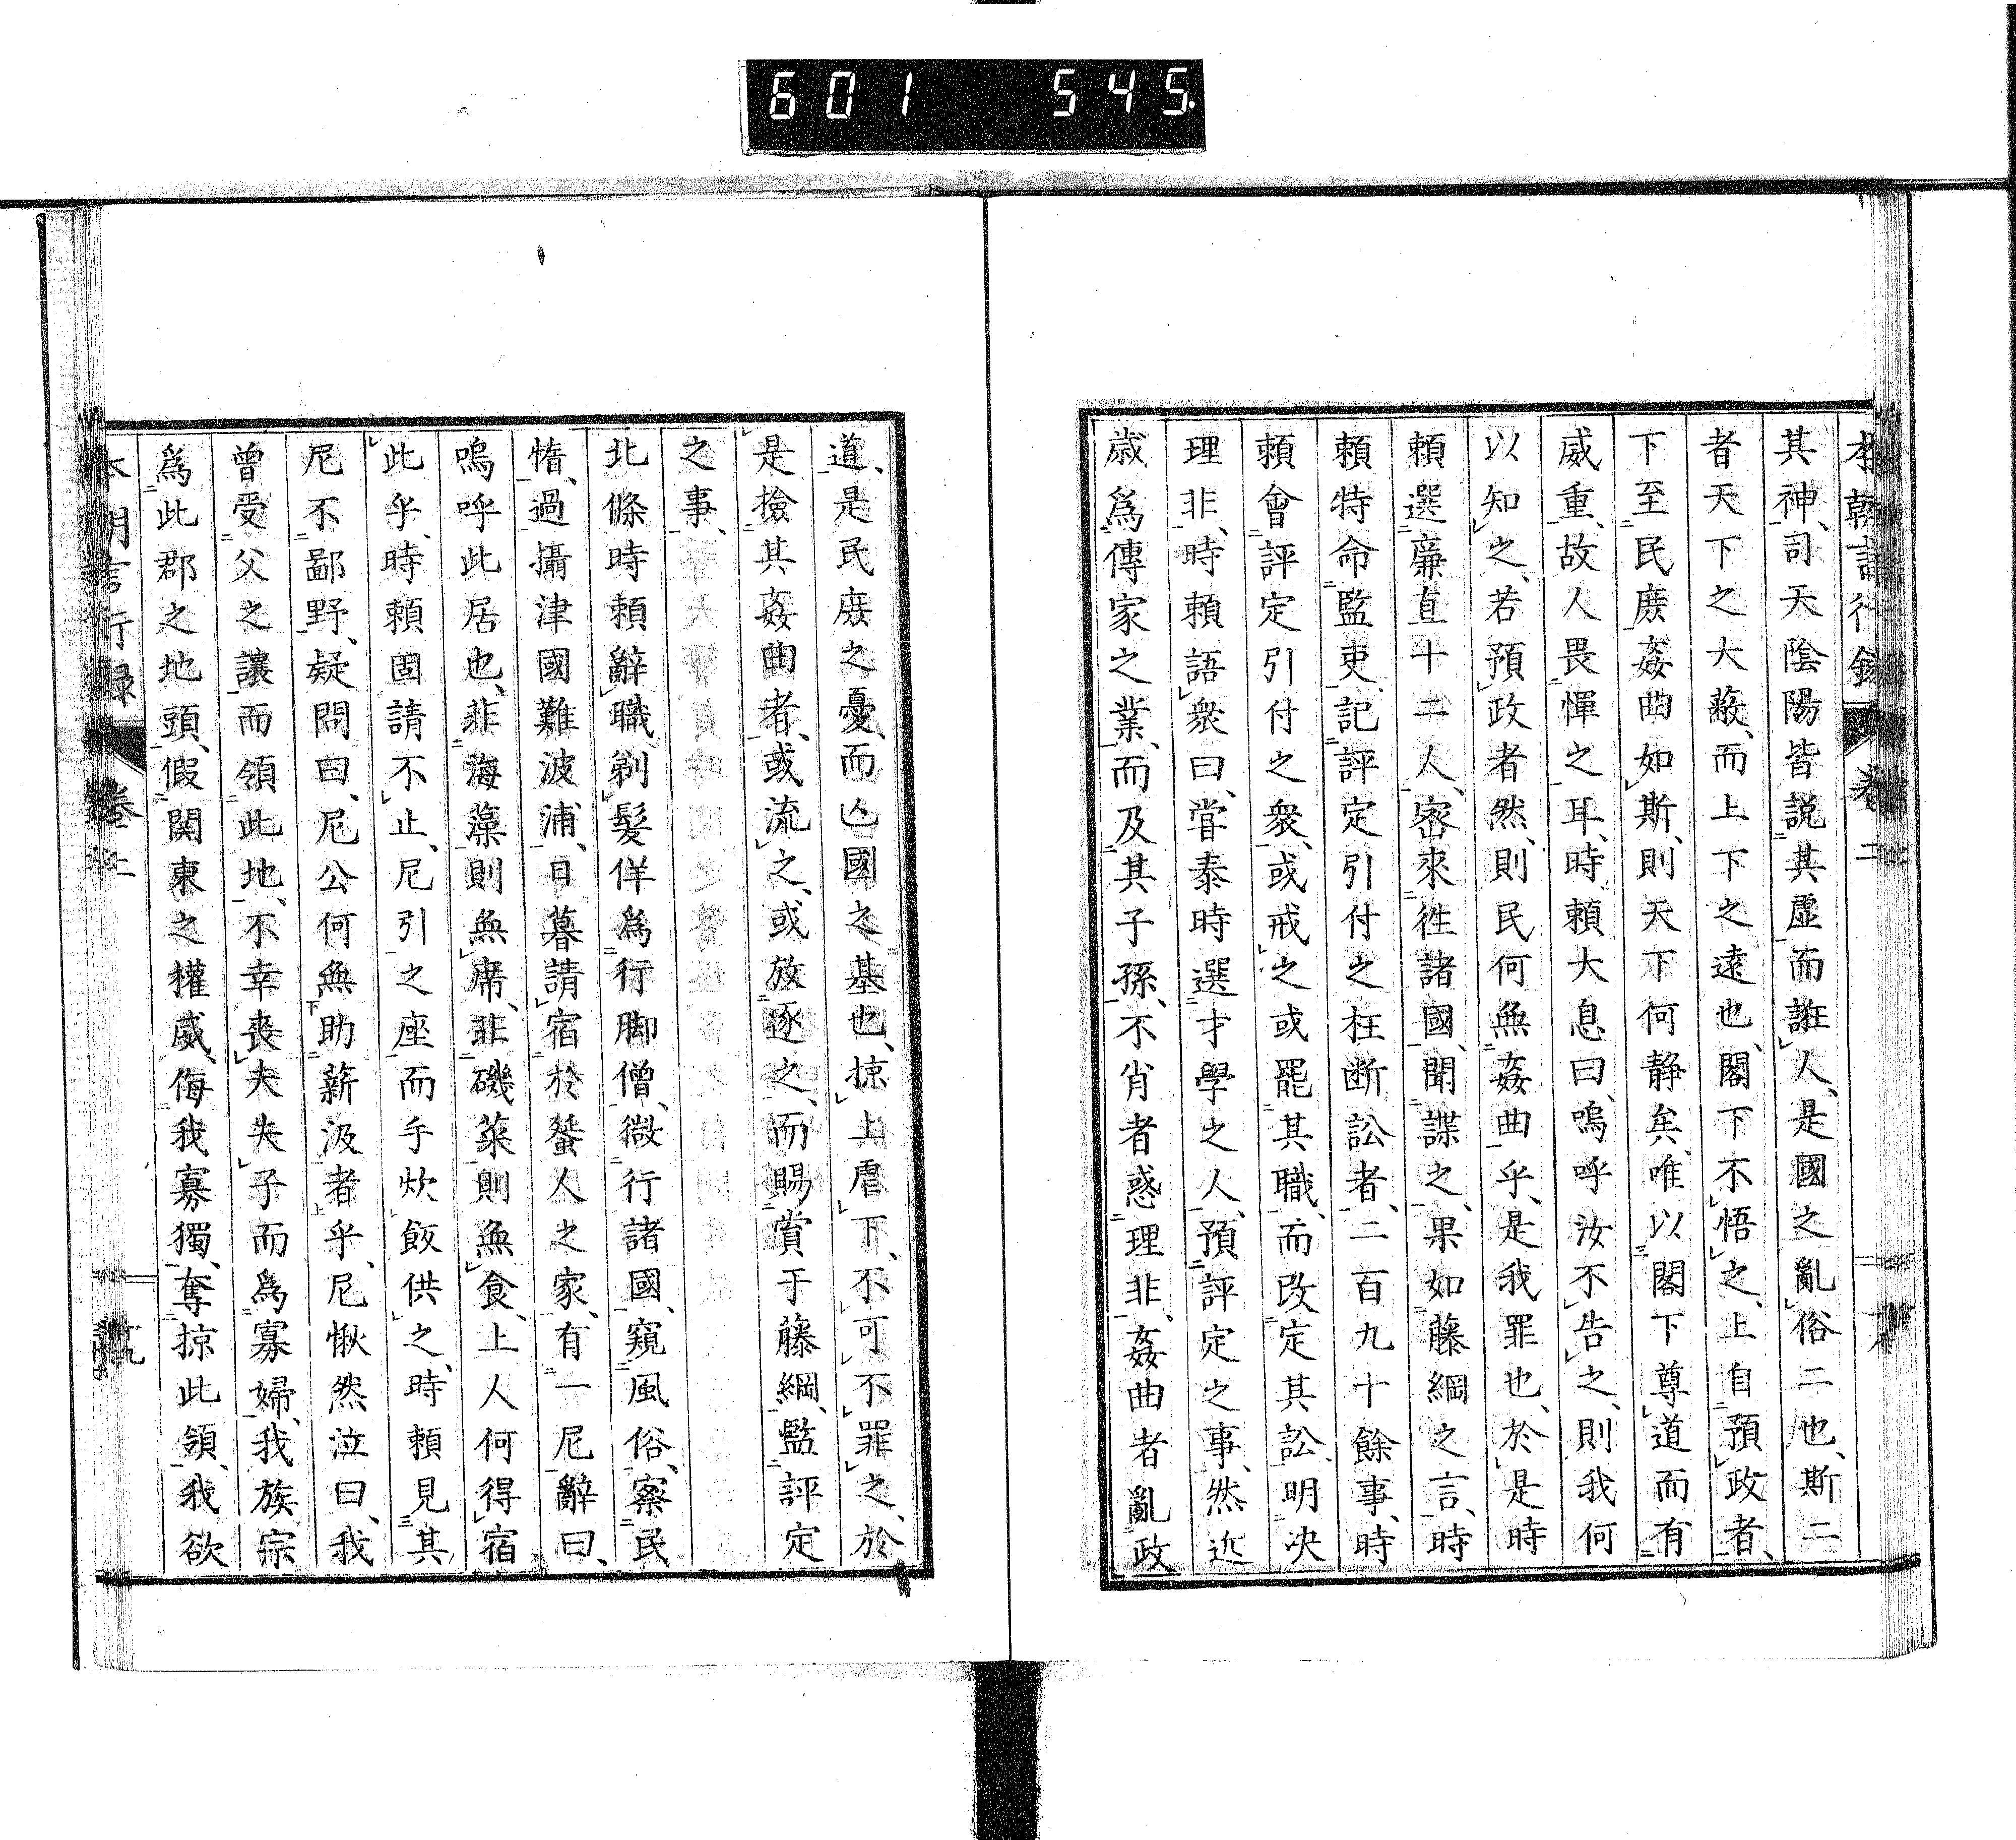 601 545.
本朝言行錄 卷二
其神、司天陰陽皆説其虚而誑人、是國之亂俗二也、斯二
者天下之大蔽、而上下之遠也、閣下不悟之、上自預政者、
下至民庶姦曲如斯、則天下何静矣、唯以閣下尊道而有
威重、故人畏憚之耳、時頼大息曰、嗚呼汝不告之、則我何
以知之、若預政者然、則民何無姦曲乎、是我罪也、於是時
頼選廉直十二人、密來徃諸國、聞諜之、果如藤綱之言、時
頼特命監吏、記評定引付之枉断訟者、二百九十餘事、時
頼會評定引付之衆、或戒之或罷其職、而改定其訟、明决
理非、時頼語衆曰、甞泰時選才學之人、預評定之事、然近
歳爲傳家之業、而及其子孫、不肖者惑理非、姦曲者亂政
道、是民庶之憂、而亾國之基也、掠上虐下、不可不罪之、於
是撿其姦曲者、或流之、或放逐之、而賜賞于藤綱、監評定
之事、
北條時頼辭職剃髮佯爲行脚僧、微行諸國、窺風俗、察民
惰、過攝津國難波浦、日暮請宿於蜑人之家、有一尼辭曰、
嗚呼此居也、非海藻則無席、非磯菜則無食、上人何得宿
此乎、時頼固請不止、尼引之座而手炊飯供之、時頼見其
尼不鄙野、疑問曰、尼公何無助薪汲者乎、尼愀然泣曰、我
曾受父之讓而領此地、不幸喪夫失子而爲寡婦、我族宗
爲此郡之地頭、假関東之權威、侮我寡獨、奪掠此領、我欲
本朝言行録 卷二 十九